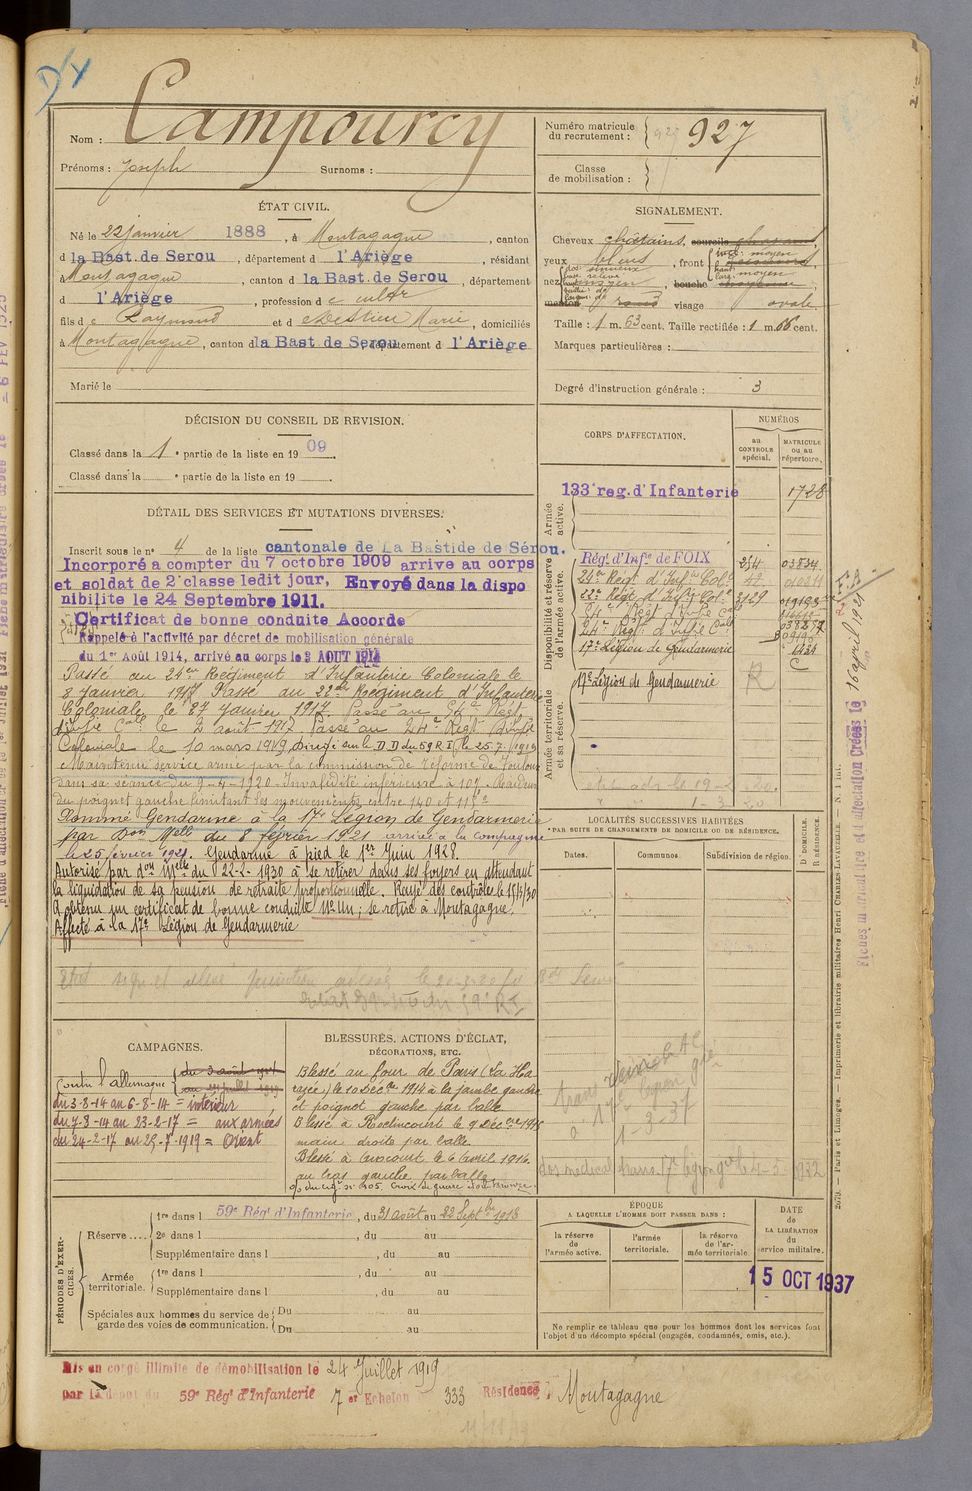 Nom : Campourcy
Prénoms : Joseph Surnoms :
Numéro matricule
du recrutement : 927
Classe
de mobilisation :
ÉTAT CIVIL.
Né le 22 janvier 1888, à Montagagne, canton
d la Bast. de Serou, département d l'Ariège, résidant
à Montagagne, canton d la Bast. de Serou, département
d l'Ariège, profession de cultr
fils de Raymond et de Destieu Marie, domiciliés
à Montagagne, canton d la Bast de Serou département d l'Ariège
Marié le
SIGNALEMENT.
Cheveux châtains, sourcils
yeux bleus, front
nez moyen bouche moyenne
menton rond visage ovale
Taille : 1 m. 63 cent. Taille rectifiée : 1 m. 66 cent.
Marques particulières :
Degré d'instruction générale : 3
DÉCISION DU CONSEIL DE REVISION.
Classé dans la 1e partie de la liste en 1909.
Classé dans la e partie de la liste en 19 .
CORPS D'AFFECTATION.
NUMÉROS
au
CONTROLE
spécial.
MATRICULE
ou au
répertoire.
Armée
active.
133e reg. d'Infanterie 1728
Disponibilité et réserve
de l'armée active.
Régt. d'Infie de FOIX 254 03834
24e Régt d'Infie Colle
22e Régt d'Infie Colle 3129
24e Régt d'Infie Colle
17e Légion de Gendarmerie
Armée territoriale
et sa réserve.
17e Légion de Gendarmerie R
DÉTAIL DES SERVICES ET MUTATIONS DIVERSES.
Inscrit sous le n° 4 de la liste cantonale de La Bastide de Sérou.
Incorporé a compter du 7 octobre 1909 arrive au corps
et soldat de 2e classe ledit jour, Envoyé dans la dispo
nibilite le 24 Septembre 1911.
Certificat de bonne conduite Accorde
Rappelé à l'activité par décret de mobilisation générale
du 1er Août 1914, arrivé au corps le 3 AOUT 1914
Passé au 24e Régiment d'Infanterie Coloniale le
8 janvier 1917 Passé au 22e Régiment d'Infanterie
Coloniale le 27 janvier 1917. Passé au Régt
d'Infie Colle le 2 août 1917 Passé au 24e Régt d'Infie
Coloniale le 10 mars 1919, Dirigé sur le D.D du 59 R.I, le 25.7.1919
Maintenu service armé par la commission de réforme de Toulouse
dans sa séance du 9-4-1920 - Invalidité inférieure à 10% Raideur
du poignet gauche limitant les mouvements entre 140 et 115°
Nommé Gendarme à la 17e Légion de Gendarmerie
par Don Mlle du 8 février 1921 arrivé à la compagnie
le 25 février 1921. Gendarme à pied le 1er Juin 1928.
Autorisé par don Mlle du 22-2-1930 à se retirer dans ses foyers en attendant
la liquidation de sa pension de retraite proportionnelle. Rayé des contrôles le 15/4/30
A obtenu un certificat de bonne conduite No Un; se retire à Montagagne.
Affecté à la 17e Légion de Gendarmerie
LOCALITÉS SUCCESSIVES HABITÉES
PAR SUITE DE CHANGEMENTS DE DOMICILE OU DE RÉSIDENCE.
Dates. Communes. Subdivision de région. D DOMICILE. R RÉSIDENCE.
CAMPAGNES.
Contre l'allemagne
du 3-8-14 au 6-8-14 = intérieur
du 7-8-14 au 23-2-17 = aux armées
du 24-2-17 au 25-7-1919 = Orient
BLESSURES. ACTIONS D'ÉCLAT,
DÉCORATIONS, ETC.
Blessé au four de Paris (La Ha
razée) le 10 Décbre 1914 à la jambe gauche
et poignet gauche par balle
Blessé à Roclincourt le 9 Décbre 1915
main droite par balle.
Blessé à le 6 avril 1916.
au bras gauche par balle
Croix de guerre Etoile Bronze.
trans
à 17e légion gie
1-3-37
PÉRIODES D'EXER-
CICES.
Réserve
1re dans l 59e Régt d'Infanterie, du 31 août au 22 Septbre 1913
2e dans l , du au
Supplémentaire dans l , du au
Armée
territoriale.
1re dans l , du au
Supplémentaire dans l , du au
Spéciales aux hommes du service de
garde des voies de communication.
Du au
Du au
ÉPOQUE
A LAQUELLE L'HOMME DOIT PASSER DANS :
la réserve
de
l'armée active.
l'armée
territoriale.
la réserve
de l'ar-
mée territoriale.
DATE
de
LA LIBÉRATION
du
service militaire.
15 OCT 1937
Ne remplir ce tableau que pour les hommes dont les services font
l'objet d'un décompte spécial (engagés, condamnés, omis, etc.).
Mis en congé illimité de démobilisation le 24 Juillet 1919
par le dépot du 59e Régt d'Infanterie 7 er Echelon 333 Résidence : Montagagne
16 april 1921
2079. — Paris et Limoges. — Imprimerie et librairie militaires Henri CHARLES-LAVAUZELLE.